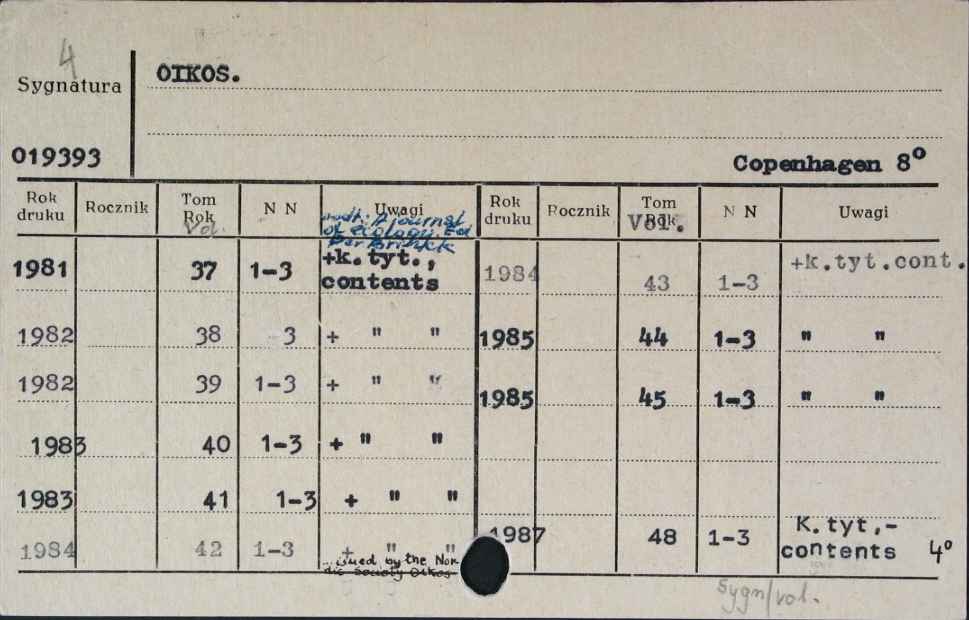 4
Sygnatura
OIKOS.
019393
Copenhagen 8º
Rok druku Rocznik Tom Rok N N Uwagi Rok druku Rocznik Tom Rok N N Uwagi
Vol. Vol.
A journal
of ecology. Ed
Per Brinkck
1981 37 1-3 +k.tyt., contents
1982 38 3 + " "
1982 39 1-3 + " "
1983 40 1-3 + " "
1983 41 1-3 + " "
1984 42 1-3 + " "
by the Nor
dic Society Oikos
1984 43 1-3 +k.tyt.cont.
1985 44 1-3 " "
1985 45 1-3 " "
1987 48 1-3 K.tyt,-
contents 4º
Sygn/vol.